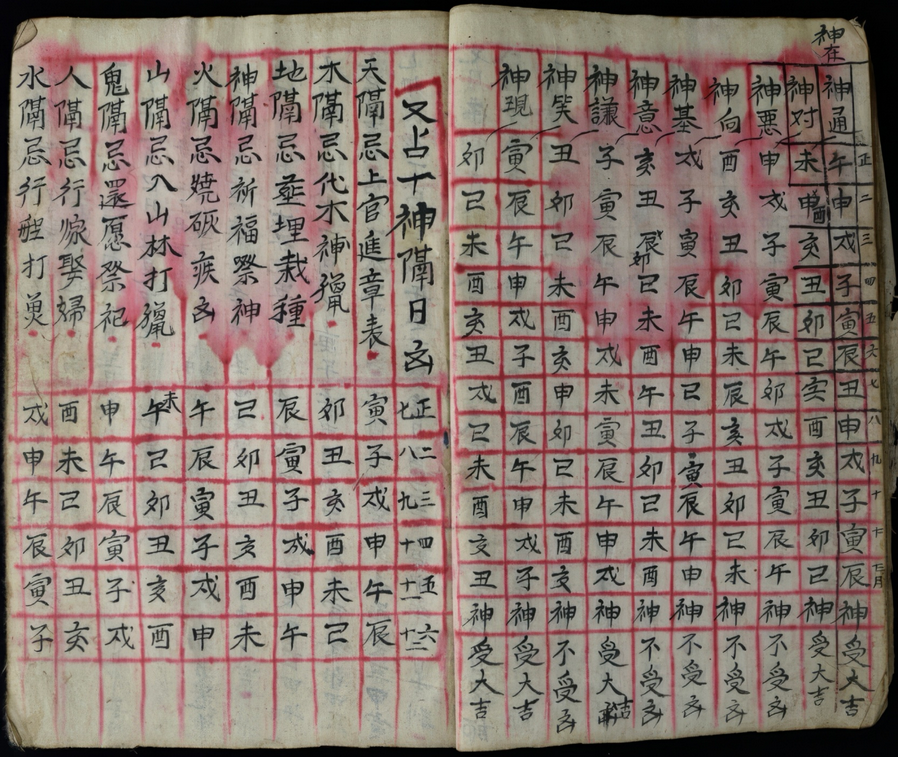 神在
正二三四五六七八九十十一十二月
神通午申戌子寅辰丑申戌子寅辰神受大吉
神对未酉亥丑卯巳亥酉亥丑卯巳神受大吉
神悪申戌子寅辰午卯戌子寅辰午神不受凶
神向酉亥丑卯巳未辰亥丑卯巳未神不受凶
神基戌子寅辰午申巳子寅辰午申神不受凶
神意亥丑卯巳未酉午丑卯巳未酉神不受凶
神謙子寅辰午申戌未寅辰午申戌神受大吉
神笑丑卯巳未酉亥申卯巳未酉亥神不受凶
神現寅辰午申戌子酉辰午申戌子神受大吉
卯巳未酉亥丑戌巳未酉亥丑神受大吉
又占十神隔日凶正七二八三九四十五十一六十二
天隔忌上官進章表寅子戌申午辰
木隔忌代木神獵卯丑亥酉未巳
地隔忌葬埋栽種辰寅子戌申午
神隔忌祈福祭神巳卯丑亥酉未
火隔忌燒砍疾凶午辰寅子戌申
山隔忌入山林打獵未巳卯丑亥酉
鬼隔忌還愿祭祀申午辰寅子戌
人隔忌行嫁娶婦酉未巳卯丑亥
水隔忌行船打魚戌申午辰寅子